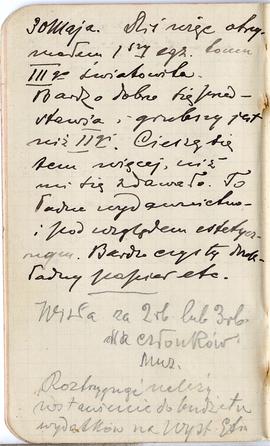 30 Maja. Dziś więc otrzy-
małem 1szy egz. tomu
III go Światowita.
Bardzo dobrze się przed-
stawia, i grubszy jest
niż II gi. Cieszę się
tem więcej, niż
mi się zdawało. To
ładne wydawnictwo
i pod względem estetycz-
nym. Bardzo czysty druk
ładny papier etc.
Wisła za 2rb lub 3rb.
dla członków
Muz.
wstawienie do budżetu
wydatków na Wyst. Etn